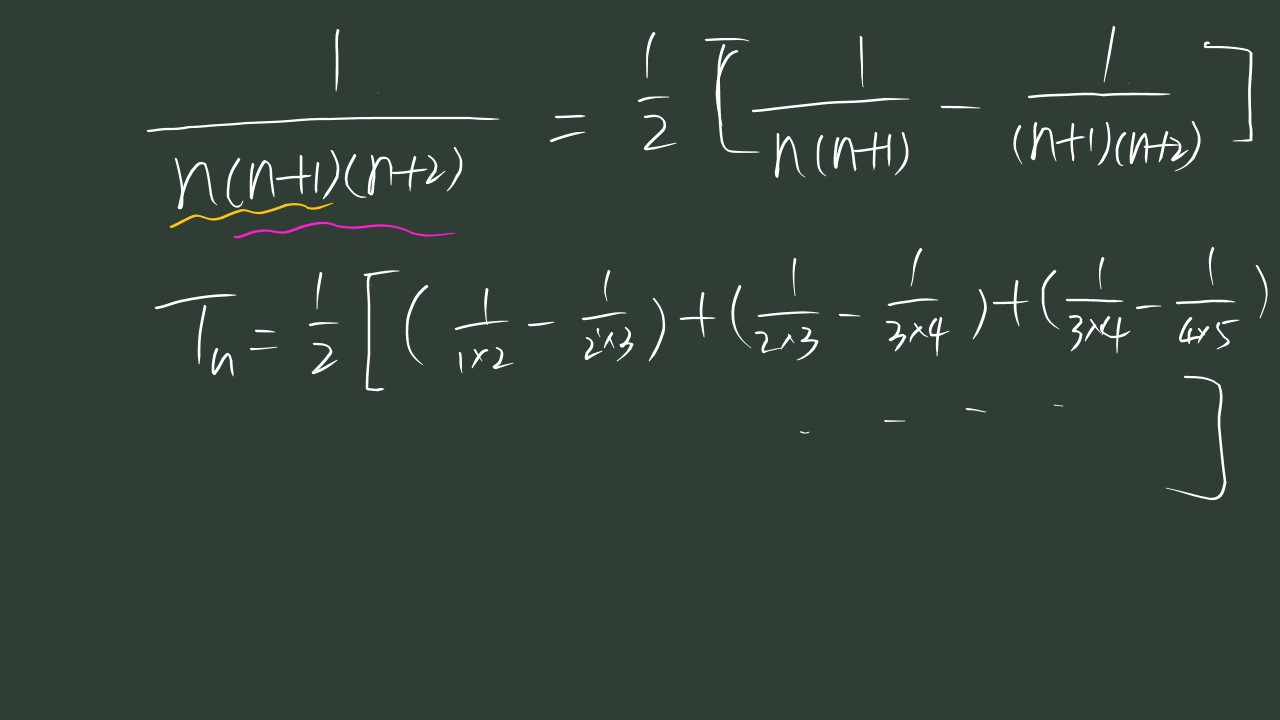 1/(n(n+1)(n+2)) = 1/2 [ 1/(n(n+1)) − 1/((n+1)(n+2)) ]
Tn = 1/2 [ ( 1/(1×2) − 1/(2×3) ) + ( 1/(2×3) − 1/(3×4) ) + ( 1/(3×4) − 1/(4×5) )
. - - - ]